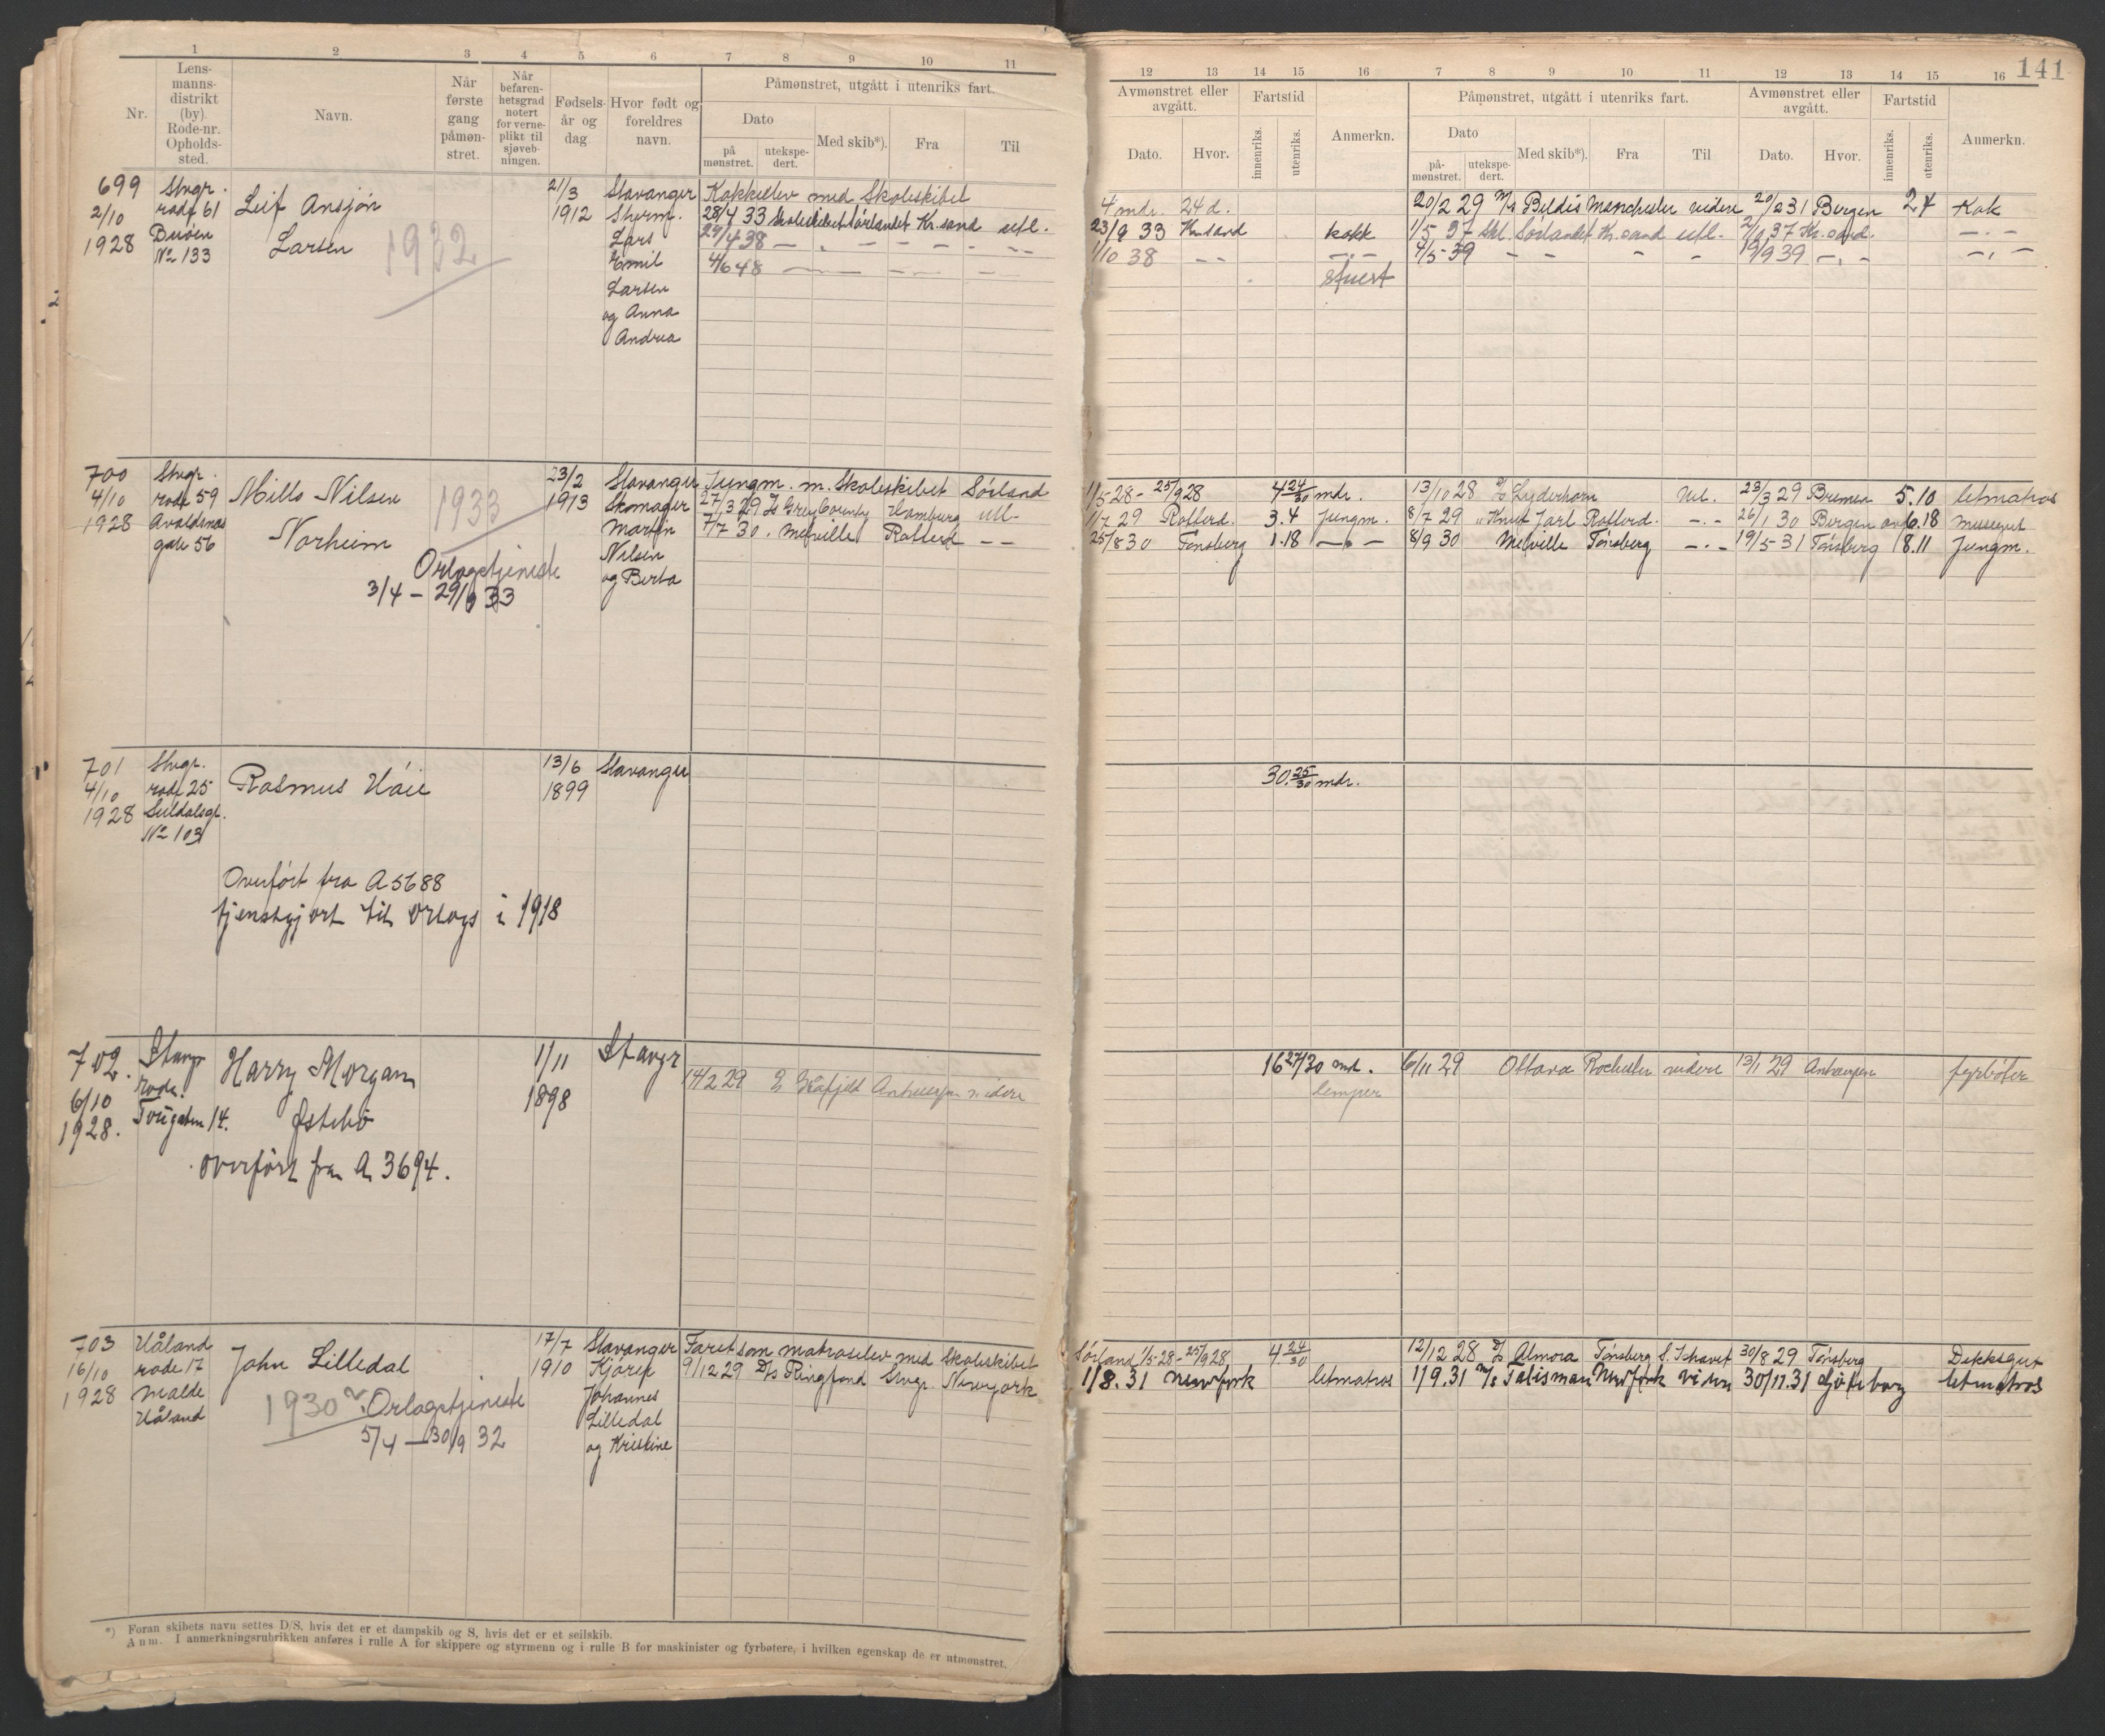 1 2 3 4 5 6 7 8 9 10 11
Nr. Lensmannsdistrikt (by). Rode-nr. Opholdssted. Navn. Når første gang påmønstret. Når befarenhetsgrad notert for verneplikt til sjøvebningen. Fødselsår og dag Hvor født og foreldres navn. Påmønstret, utgått i utenriks fart.
Dato på mønstret. utekspedert. Med skib*). Fra Til
12 13 14 15 16 7 8 9 10 11 12 13 14 15 16 141
Avmønstret eller avgått. Fartstid Anmerkn. Påmønstret, utgått i utenriks fart. Avmønstret eller avgått. Fartstid Anmerkn.
Dato. Hvor. innenriks. utenriks. Dato påmønstret. utekspedert. Med skib*). Fra Til Dato. Hvor. innenriks. utenriks.
699 Stvgr. Leif Ansjøn 21/3 Stavanger Kokkelev med Skoleskibet
2/10 rode 61 1912 Styrm. 28/4 33 Skoleskibet Sørlandet Kr.sand utl.
1928 Buøen Larsen 1932 Lars 29/4 38 — „ — — — —
No 133 Emil 4/6 48 — — — —
Larsen
og Anna
Andrea
4 mdr. 24 d. 20/2 29 M/s Beldis Manchester videre 20/2 31 Bergen 24 Kok
23/9 33 Kr.sand kokk 1/5 37 Skl. Sørlandet Kr.sand utl. 37 Kr.sand. — . —
1/10 38 — — — . — 4/5-39 — — — — 19/9 39 — . — — . —
stuert
700 Stvgr. Mills Nilsen 1933 23/2 Stavanger Jungm. m. Skoleskibet Sørland
4/10 rode 59 1913 Skomager 27/3 29 Grey County Hamburg utl-
1928 Avaldsnes Norheim Martin 7/7 30 . Melville Rotterd — —
gate 56 Orlogstjeneste Nilsen
3/4 - 29/9 33 og Berta
1/5 28 - 25/9 28 4 24/30 mdr. 13/10 28 D/s Lyderhorn Utl. 23/3 29 Bremen 5.10 letmatros
1/7 29 Rotterd. 3.4 Jungm. 8/7 29 „ Knut Jarl Rotterd. — . — 26/1 30 Bergen 6.18 messegut
25/8 30 Tønsberg 1.18 — . — 8/9 30 Melville Tønsberg — . — 19/5-31 Tønsberg 8.11 Jungm.
701 Stvgr. Rasmus Håie 13/6 Stavanger
4/10 rode 25 1899
1928 Suldalsgt.
No 103
Overført fra A 5688
tjenstgjort til Orlogs i 1918
30. 25/30 mdr.
702. Stavgr Harry Morgan 1/11 Stavgr
6/10 rode. 1898 14/2 29 Antwerpen videre
1928. 14. Østebø
Overført fra A 3694.
16 27/30 md. 6/11 29 Ottava Rochester videre 13/1 29 Antwerpen fyrbøter
lemper
703 Håland John Lilledal 17/7 Stavanger Faret som matroselev med Skoleskibet
16/10 rode 17 1910 Kjørep 9/12 29 D/s Ringfond Stvgr. Newyork
1928 Malde 1930 Orlogstjeneste Johannes
Håland 5/4 — 30/9 32 Lilledal
og Kristine
Sørland 1/5-28 - 25/9 28 4 24/30 12/12 28 D/s Almora Tønsberg S. Ishavet 30/8 29 Tønsberg Dekksgut
1/8. 31 Newyork letmatros 1/9.31 M/s Talisman Newyork viden 30/11.31 Gøteborg letmatros
*) Foran skibets navn settes D/S, hvis det er et dampskib og S, hvis det er et seilskib.
Anm. I anmerkningsrubrikken anføres i rulle A for skippere og styrmenn og i rulle B for maskinister og fyrbøtere, i hvilken egenskap de er utmønstret.